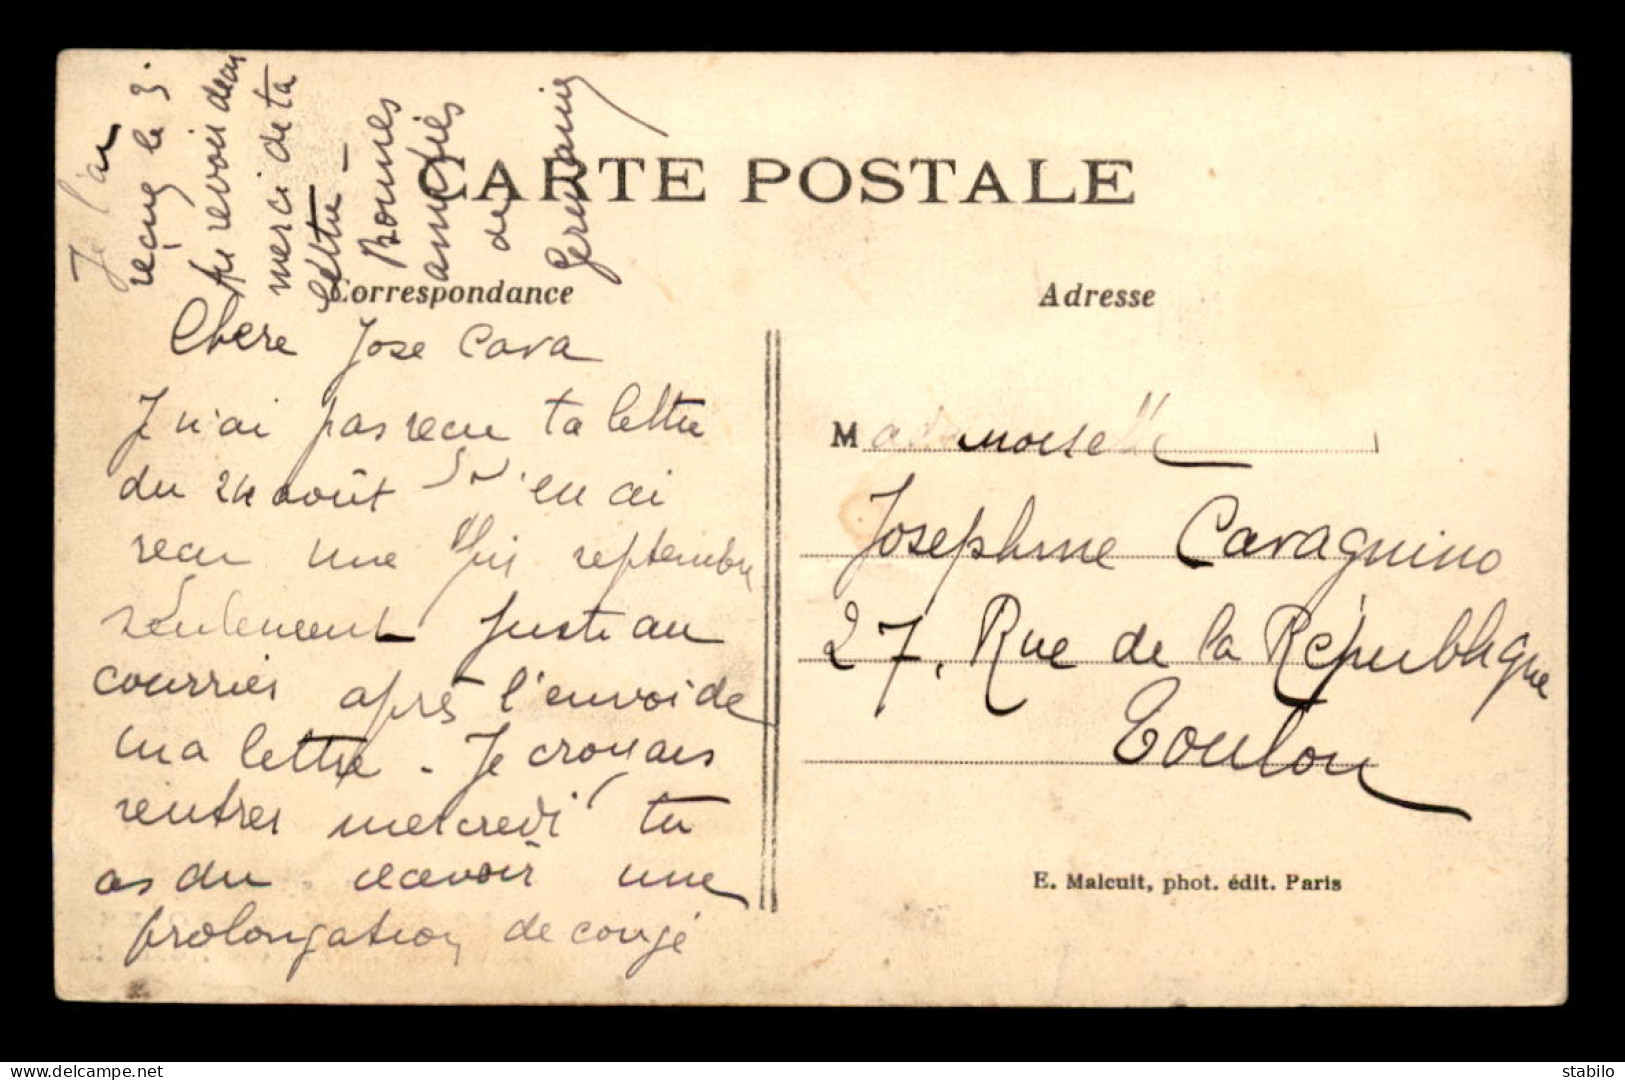 CARTE POSTALE
Correspondance
Adresse
Chere Jose Cava
J n'ai pas recu ta lettre
du 24 août J'en ai
recu une septembre
seulement juste au
courrier après l'envoi de
ma lettre. Je croyais
rentrer mercredi tu
as du recevoir une
prolongation de congé
Je l'ai
reçue le 3.
Au revoir
merci de ta
lettre -
Bonnes
amitiés
de
Germaine
Mademoiselle
Josephine Cavagnino
27, Rue de la République
Toulon
E. Malcuit, phot. édit. Paris
delcampe.net
stabilo